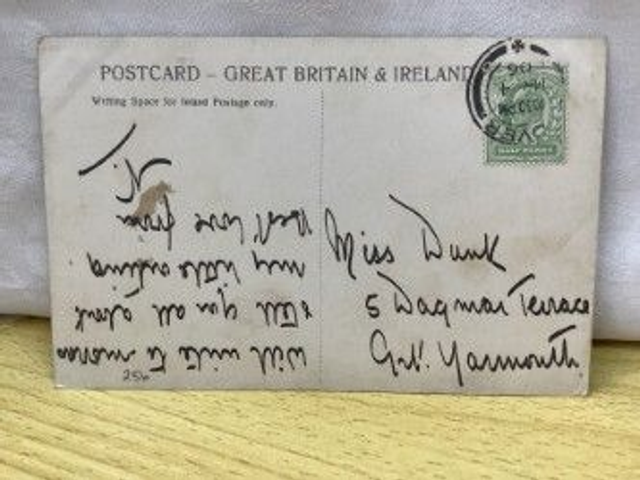 POSTCARD – GREAT BRITAIN & IRELAND
Writing Space for Inland Postage only.
Will write to morrow
& tell you all about
my little outing
Best love from
Miss Dunk
5 Dagmar Terrace
Grt. Yarmouth
HALF PENNY
OVER
06
256